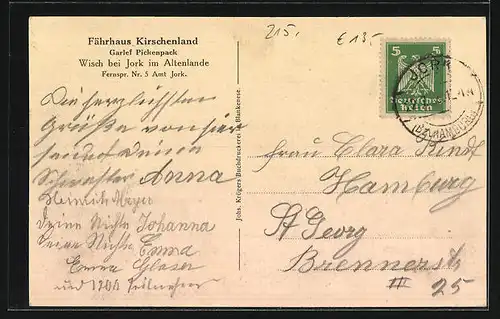 Fährhaus Kirschenland
Garlef Pickenpack
Wisch bei Jork im Altenlande
Fernspr. Nr. 5 Amt Jork.
Die herzlichsten
Grüße von hier
sendet Deine
Schwester Anna
Heinrich Meyer
Deine Nichte Johanna
Deine Nichte Emma
Erna Glaser
und
Johs. Krögers Buchdruckerei Blankenese.
215.
€ 15.-
5 5
Deutsches
Reich
JORK
(BZ. HAMBURG)
Frau Clara
Hamburg
St Georg
Brennerstr
III 25